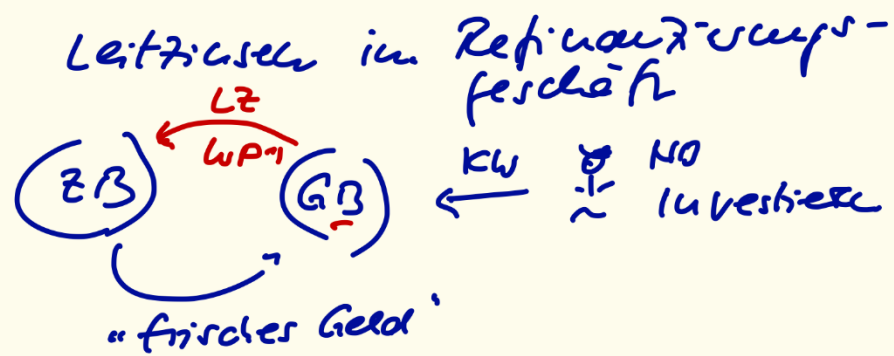 Leitzinsen im Refinanzierungs-
geschäft
LZ
WP
ZB
GB
KW
NO
Investieren
"frisches Geld"